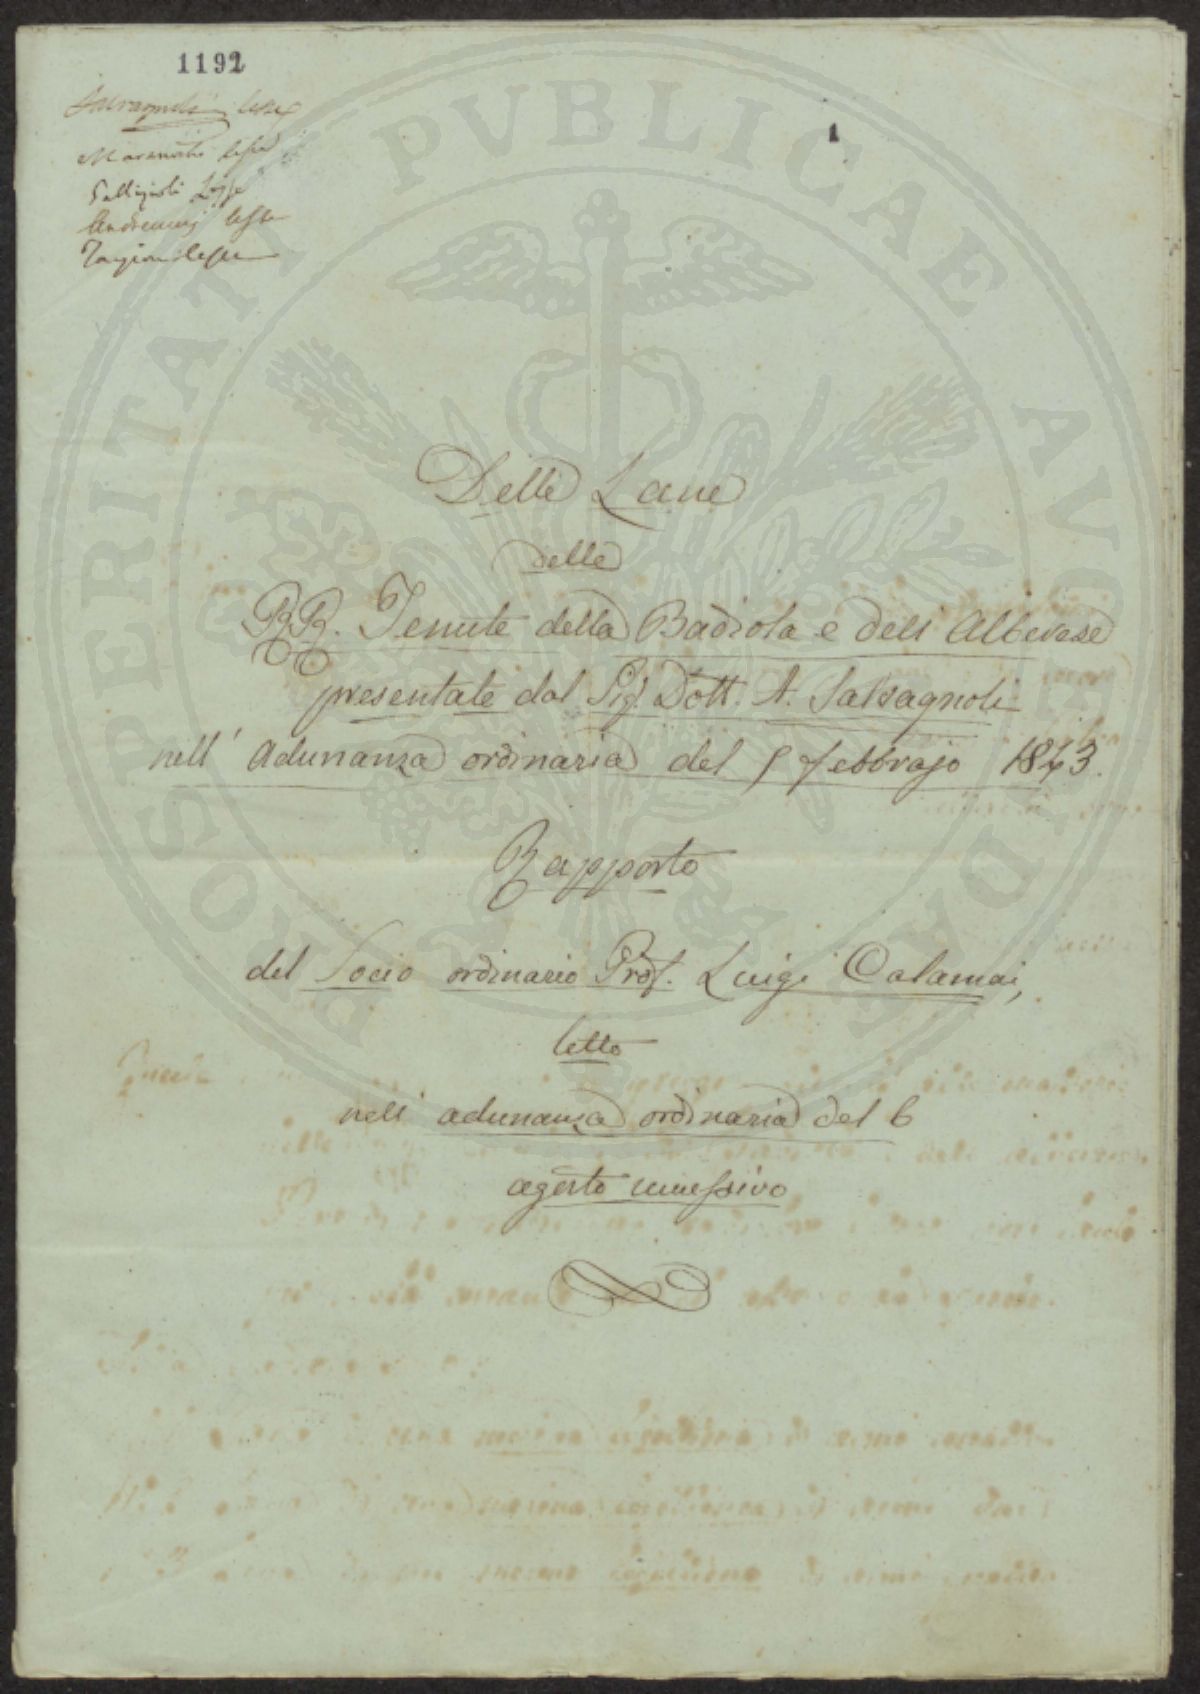 1192
1
Salvagnoli lesse
lesse
Lesse
lesse
lesse
Delle Lane
delle
RR. Tenute della Badiola e dell'Alberese
presentate dal Sig. Dott. A. Salvagnoli
nell' Adunanza ordinaria del 5 febbrajo 1843.
Rapporto
del Socio ordinario Prof. Luigi Calamai,
letto
nell' adunanza ordinaria del 6
agosto successivo
PROSPERITATI PUBLICAE AUGENDAE